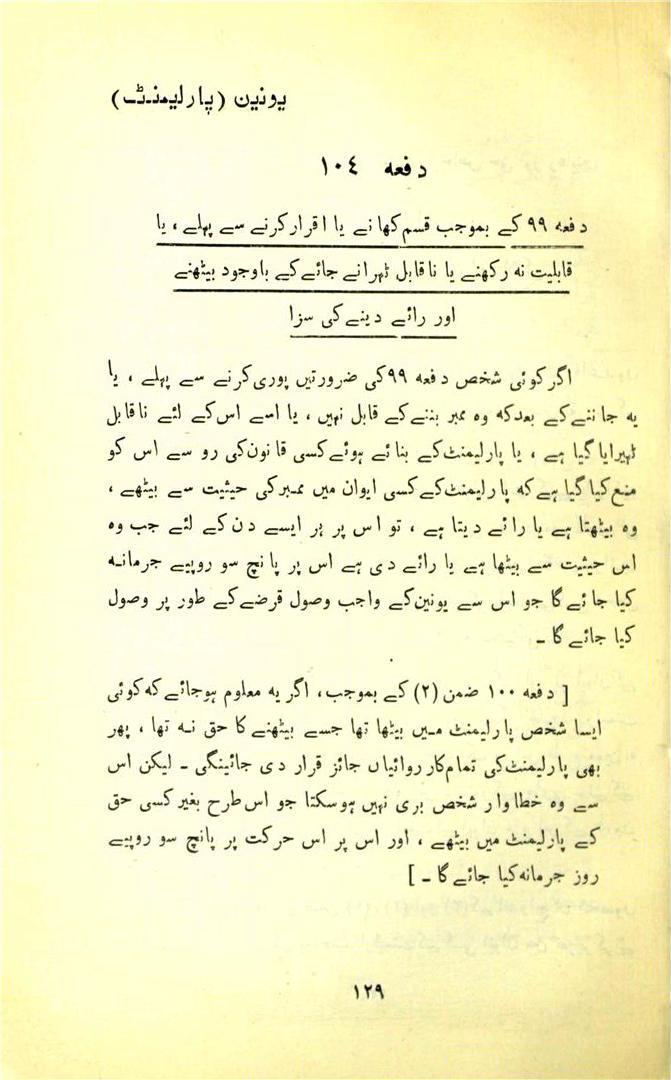 یونین (پارلیمنٹ)
دفعہ ١٠٤
دفعہ ٩٩ کے بموجب قسم کھانے یا اقرار کرنے سے پہلے ، یا
قابلیت نہ رکھنے یا ناقابل ٹہرانے جائے کے باوجود بیٹھنے
اور رائے دینے کی سزا
اگر کوئی شخص دفعہ ٩٩ کی ضرورتیں پوری کرنے سے پہلے ، یا
یہ جاننے کے بعد کہ وہ ممبر بننے کے قابل نہیں ، یا اسے اس کے لئے ناقابل
ٹہیرایا گیا ہے ، یا پارلیمنٹ کے بنائے ہوئے کسی قانون کی رو سے اس کو
منع کیا گیا ہے کہ پارلیمنٹ کے کسی ایوان میں ممبر کی حیثیت سے بیٹھے ،
وہ بیٹھتا ہے یا رائے دیتا ہے ، تو اس پر ہر ایسے دن کے لئے جب وہ
اس حیثیت سے بیٹھا ہے یا رائے دی ہے اس پر پانچ سو روپیے جرمانہ
کیا جائے گا جو اس سے یونین کے واجب وصول قرضے کے طور پر وصول
کیا جائے گا ۔
[ دفعہ ١٠٠ ضمن (٢) کے بموجب ، اگر یہ معلوم ہوجائے کہ کوئی
ایسا شخص پارلیمنٹ میں بیٹھا تھا جسے بیٹھنے کا حق نہ تھا ، پھر
بھی پارلیمنٹ کی تمام کارروائیاں جائز قرار دی جائینگی ۔ لیکن اس
سے وہ خطاوار شخص بری نہیں ہوسکتا جو اس طرح بغیر کسی حق
کے پارلیمنٹ میں بیٹھے ، اور اس پر اس حرکت پر پانچ سو روپیے
روز جرمانہ کیا جائے گا ۔ ]
١٢٩